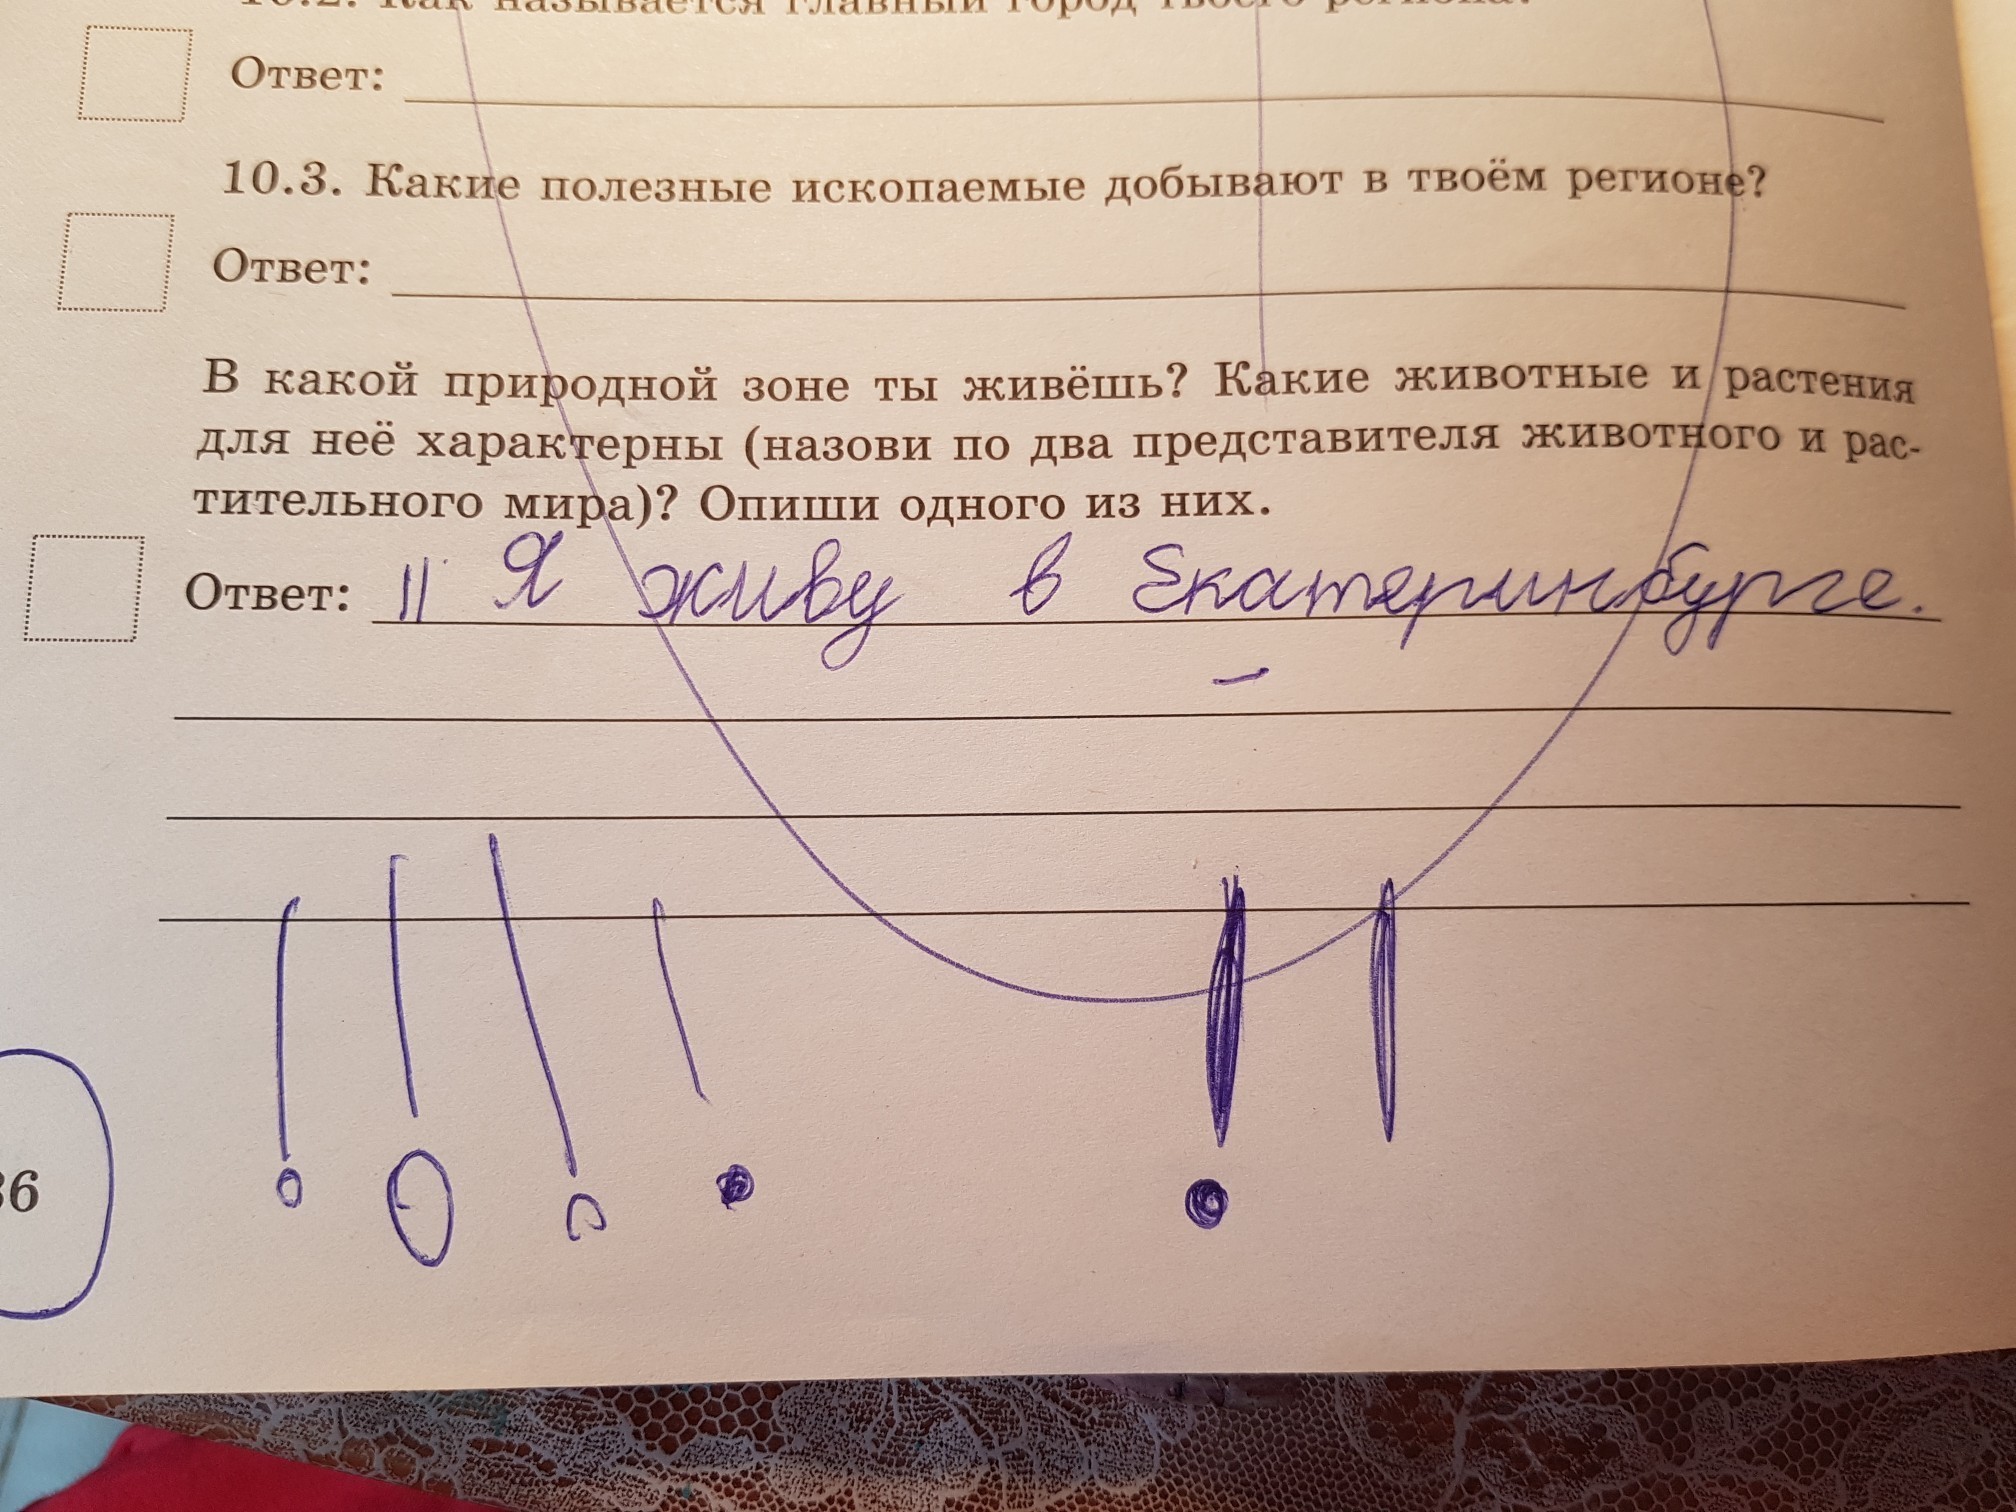 10.2. Как называется главный город твоего региона?
Ответ:
10.3. Какие полезные ископаемые добывают в твоём регионе?
Ответ:
В какой природной зоне ты живёшь? Какие животные и растения
для неё характерны (назови по два представителя животного и рас-
тительного мира)? Опиши одного из них.
Ответ: || Я живу в Екатеринбурге.
36